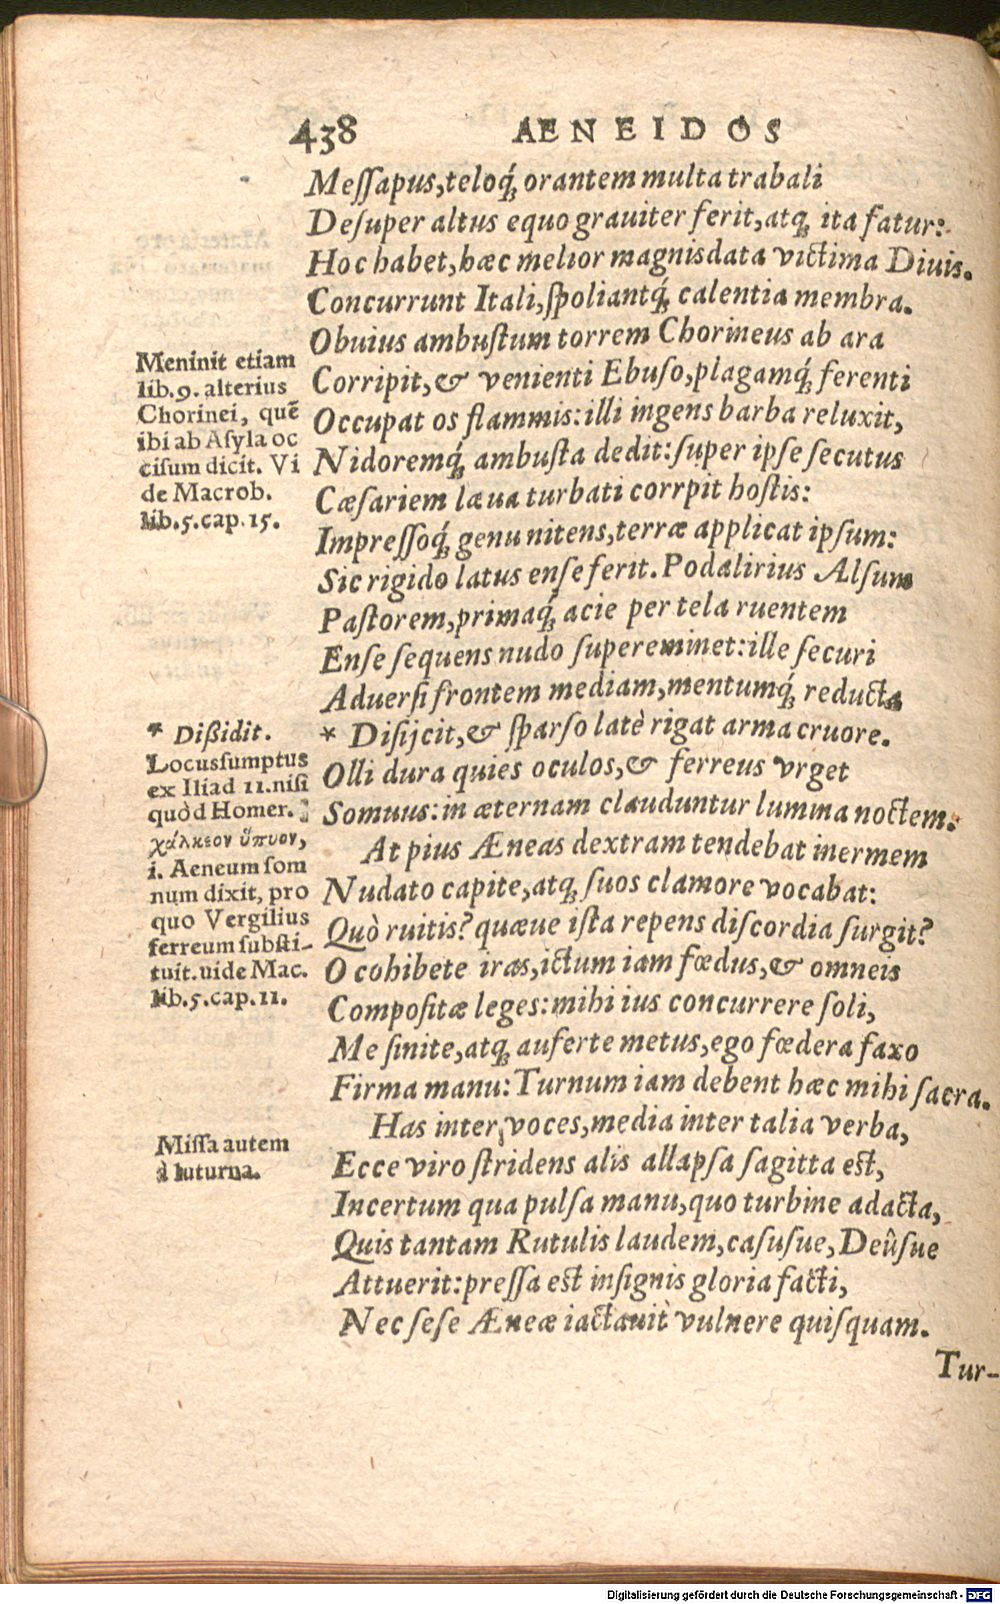 438 AENEIDOS
Meſſapus,teloq́; orantem multa trabali
Deſuper altus equo grauiter ferit,atq; ita fatur:
Hoc habet,hæc melior magnis data victima Diuis.
Concurrunt Itali,ſpoliantq́; calentia membra.
Obuius ambuſtum torrem Chorineus ab ara
Corripit,& venienti Ebuſo,plagamq́; ferenti
Occupat os flammis:illi ingens barba reluxit,
Nidoremq́; ambuſta dedit:ſuper ipſe ſecutus
Cæſariem læua turbati corrpit hoſtis:
Impreſſoq́; genu nitens,terræ applicat ipſum:
Sic rigido latus enſe ferit. Podalirius Alſum
Paſtorem,primaq́; acie per tela ruentem
Enſe ſequens nudo ſupereminet:ille ſecuri
Aduerſi frontem mediam,mentumq́; reducta
* Diſijcit,& ſparſo latè rigat arma cruore.
Olli dura quies oculos,& ferreus vrget
Somnus:in æternam clauduntur lumina noctem.
At pius Æneas dextram tendebat inermem
Nudato capite,atq; ſuos clamore vocabat:
Quò ruitis? quæue iſta repens diſcordia ſurgit?
O cohibete iras,ictum iam fœdus,& omneis
Compoſitæ leges:mihi ius concurrere ſoli,
Me ſinite,atq; auferte metus,ego fœdera faxo
Firma manu:Turnum iam debent hæc mihi ſacra.
Has inter voces,media inter talia verba,
Ecce viro ſtridens alis allapſa ſagitta eſt,
Incertum qua pulſa manu,quo turbine adacta,
Quis tantam Rutulis laudem,caſusue,Deûſue
Attuerit:preſſa eſt inſignis gloria facti,
Nec ſeſe Æneæ iactauit vulnere quiſquam.
Tur-
Meninit etiam
lib.9. alterius
Chorinei, quē
ibi ab Aſyla oc
ciſum dicit. Vi
de Macrob.
lib.5.cap.15.
* Dißidit.
Locus ſumptus
ex Iliad 11.niſi
quòd Homer.
χάλκεον ὕπνον,
i. Aeneum ſom
num dixit, pro
quo Vergilius
ferreum ſubſti-
tuit.uide Mac.
lib.5.cap.11.
Miſſa autem
à Iuturna.
Digitalisierung gefördert durch die Deutsche Forschungsgemeinschaft - DFG